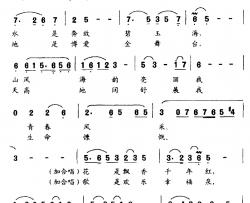 7· 2 6 7 2 5 7 5 3 5 7 6 5
水是奔放碧玉海，
地是博爱金舞台。
6 6 1 5· 6 5 6 1 6 5 3 5 6 1 2
山风海韵亮丽我
天高地阔舒展我
0 2 2 6 5· 6 6 5 0 3 0 7 6 7 6 4 3
青春风采，
生命慷慨。
3 5· 6 5 3 2 3 5 3 2 3 2 1 2
（加合唱）花是飘香千年红，
（加合唱）歌是欢乐幸福泉，